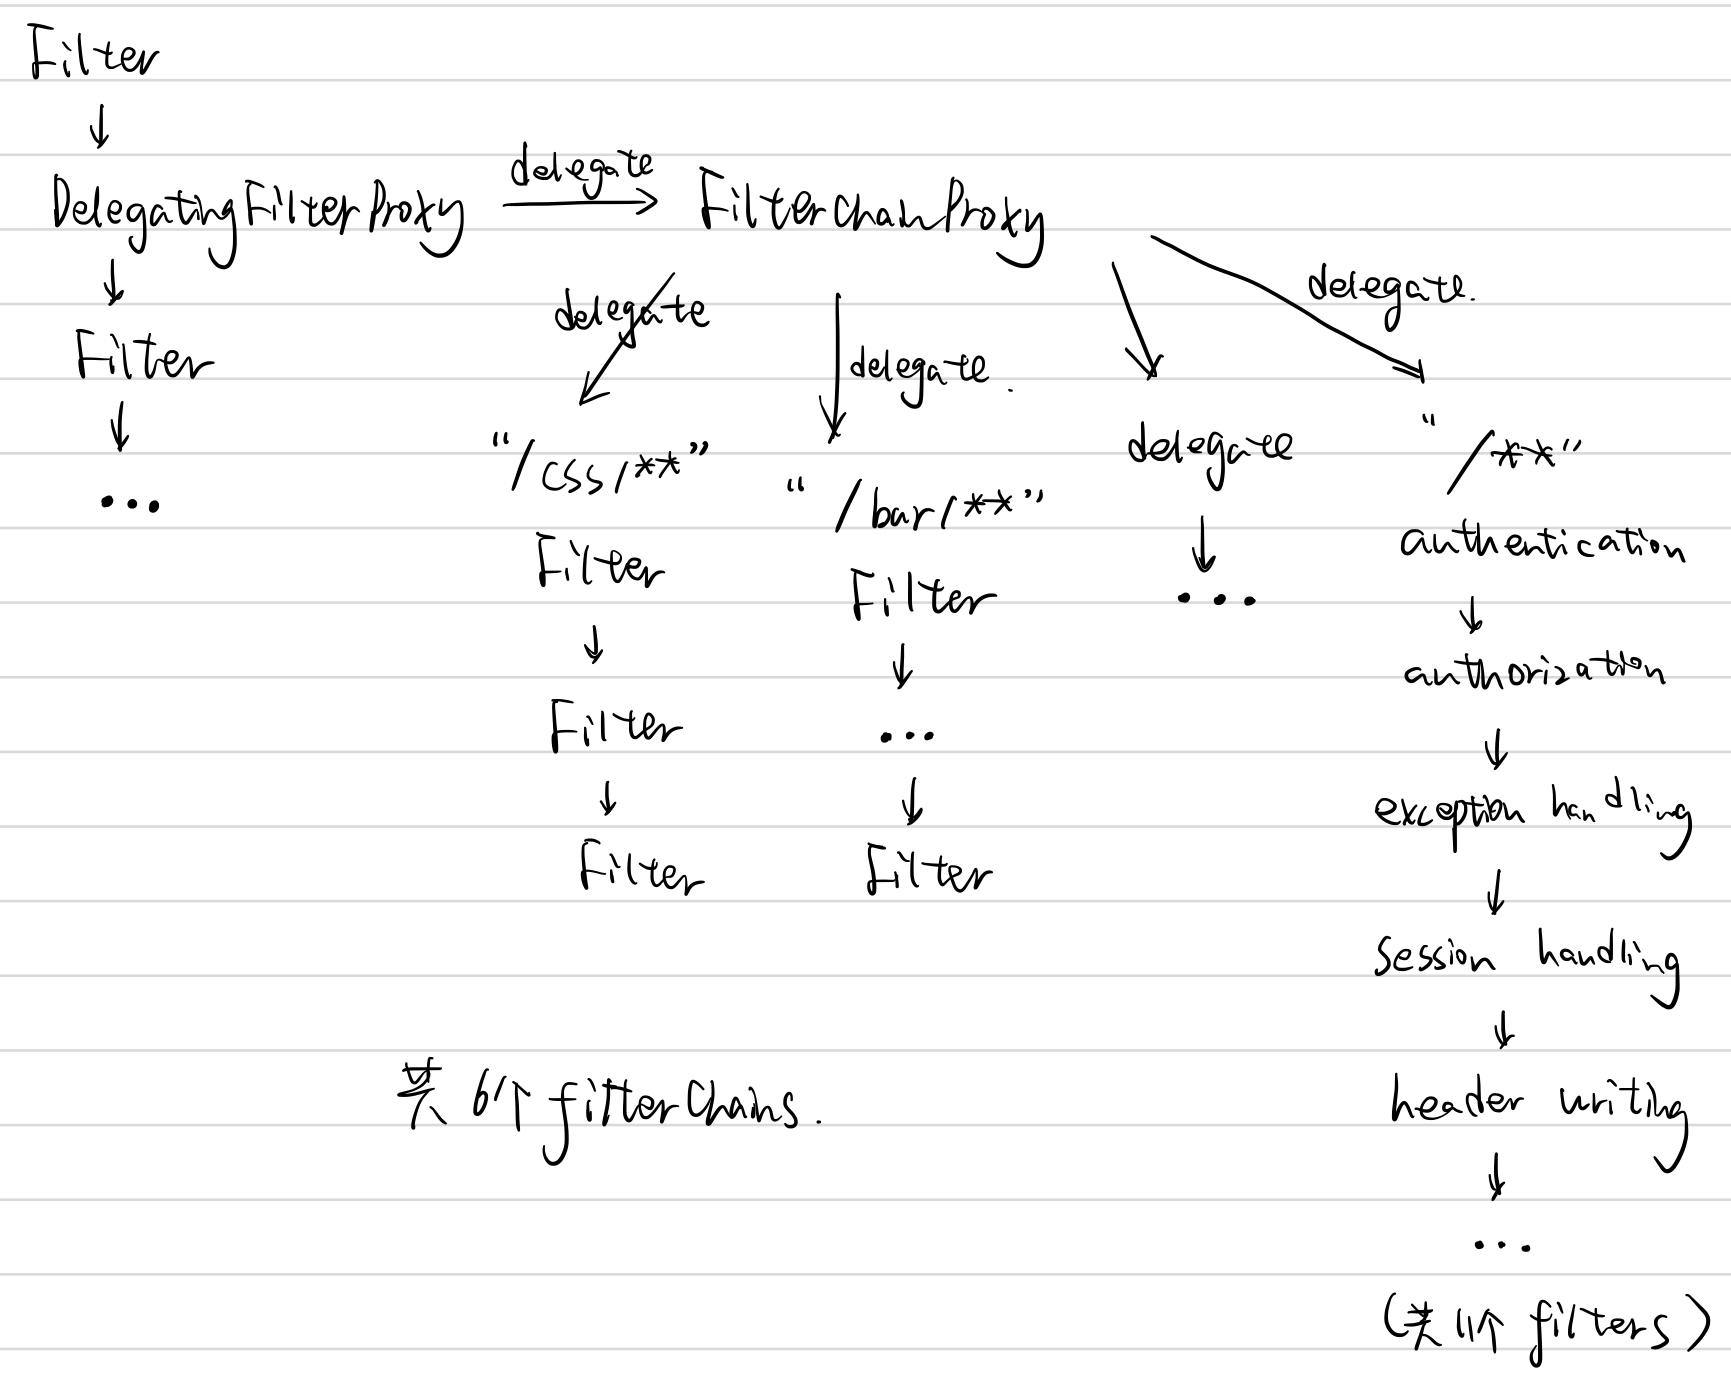 Filter
↓
DelegatingFilterProxy delegate → FilterChainProxy
↓
Filter
↓
...
delegate
"/css/**"
Filter
↓
Filter
↓
Filter
delegate.
"/bar/**"
Filter
↓
...
↓
Filter
delegate
↓
...
delegate.
"/**"
authentication
↓
authorization
↓
exception handling
↓
session handling
↓
header writing
↓
...
(共11个 filters)
共 6个 filterChains.